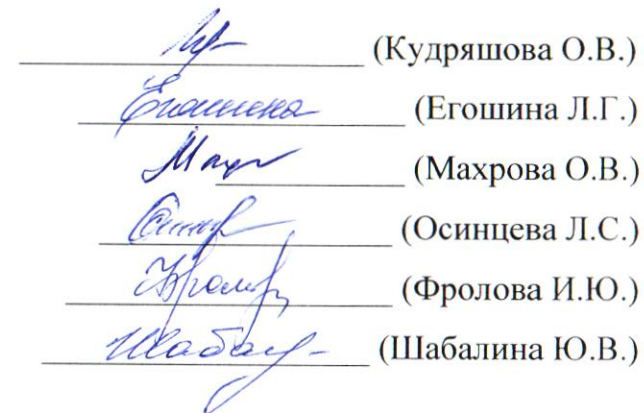 (Кудряшова О.В.)
Егошина (Егошина Л.Г.)
Махр (Махрова О.В.)
(Осинцева Л.С.)
(Фролова И.Ю.)
(Шабалина Ю.В.)